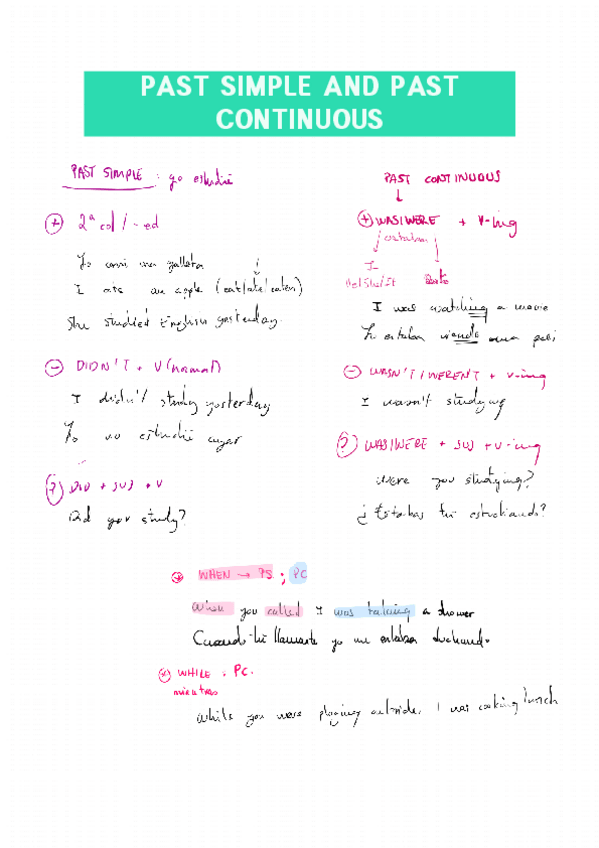 PAST SIMPLE AND PAST
CONTINUOUS
PAST SIMPLE : yo estudié
(+) 2ª col / -ed
Yo comí una galleta
I ate an apple (eat/ate/eaten)
She studied English yesterday.
(-) DIDN'T + V(normal)
I didn't study yesterday
Yo no estudié ayer
(?) DID + SUJ + V
Did you study?
PAST CONTINUOUS
↓
(+) WAS/WERE + V-ing
estaba
I
He/She/It
I was watching a movie
Yo estaba viendo una peli
(-) WASN'T/WEREN'T + V-ing
I wasn't studying
(?) WAS/WERE + SUJ + V-ing
Were you studying?
¿Estabas tú estudiando?
WHEN → PS ; PC
When you called I was taking a shower
Cuando tú llamaste yo me estaba duchando.
WHILE : PC.
mientras
While you were playing outside, I was cooking lunch